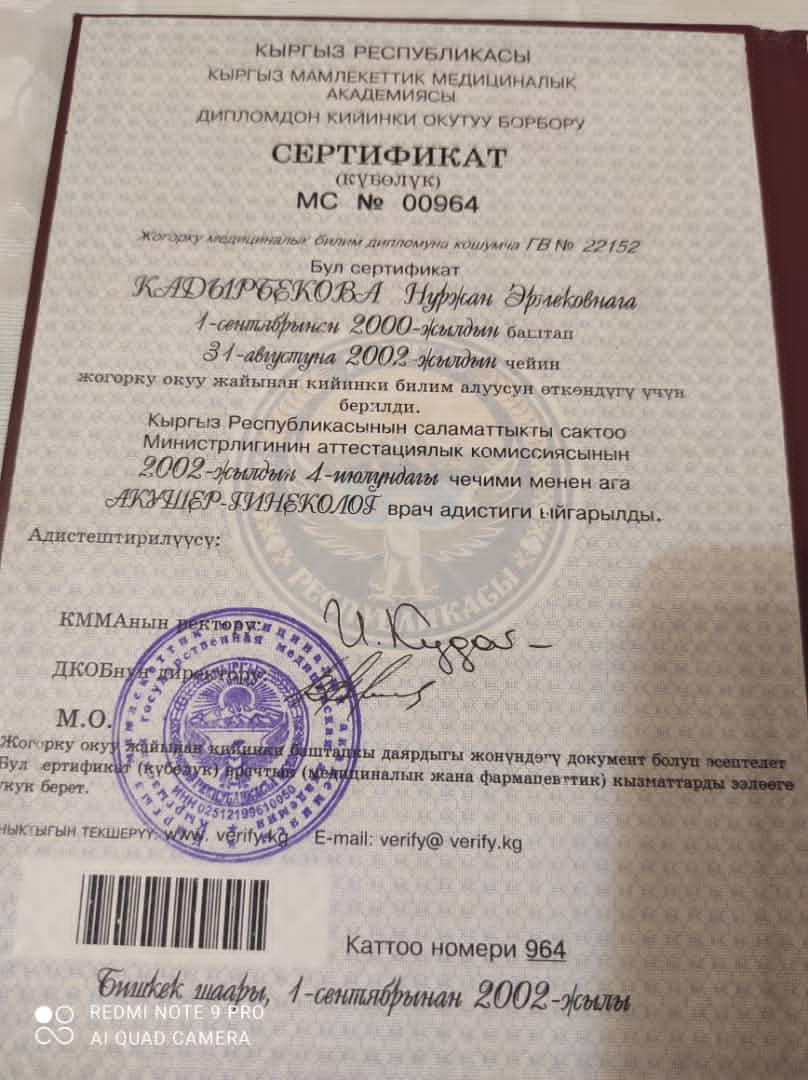 КЫРГЫЗ РЕСПУБЛИКАСЫ
КЫРГЫЗ МАМЛЕКЕТТИК МЕДИЦИНАЛЫК
АКАДЕМИЯСЫ
ДИПЛОМДОН КИЙИНКИ ОКУТУУ БОРБОРУ
СЕРТИФИКАТ
(КҮБӨЛҮК)
МС № 00964
Жогорку медициналык билим дипломуна кошумча ГВ № 22152
Бул сертификат
КАДЫРБЕКОВА Нуржан Эрмековнага
1-сентябрынан 2000-жылдын баштап
31-августуна 2002-жылдын чейин
жогорку окуу жайынан кийинки билим алуусун өткөндүгү үчүн
берилди.
Кыргыз Республикасынын саламаттыкты сактоо
Министрлигинин аттестациялык комиссиясынын
2002-жылдын 4-июлундагы чечими менен ага
АКУШЕР-ГИНЕКОЛОГ врач адистиги ыйгарылды.
Адистештирилүүсү:
РЕСПУБЛИКАСЫ
КММАнын ректору:
ДКОБнун директору:
М.О.
ИНН 02512199610050
Жогорку окуу жайынан кийинки баштапкы даярдыгы жөнүндөгү документ болуп эсептелет
Бул сертификат (күбөлүк) врачтык (медициналык жана фармацевттик) кызматтарды ээлөөгө
укук берет.
НЫКТЫГЫН ТЕКШЕРҮҮ: www. verify.kg E-mail: verify@ verify.kg
Каттоо номери 964
Бишкек шаары, 1-сентябрынан 2002-жылы
REDMI NOTE 9 PRO
AI QUAD CAMERA